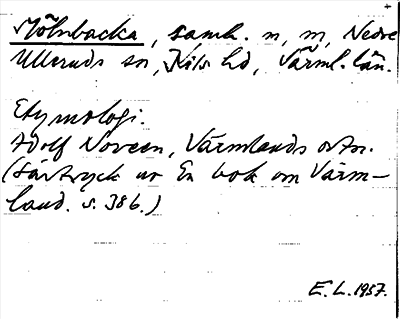 Mölnbacka, samh. m, m, Nedre
Ulleruds sn, Kils hd, Värml. län.
Etymologi.
Adolf Noreen, Värmlands ortn.
(Särtryck ur En bok om Värm-
land. s. 386.)
E. L. 1957.